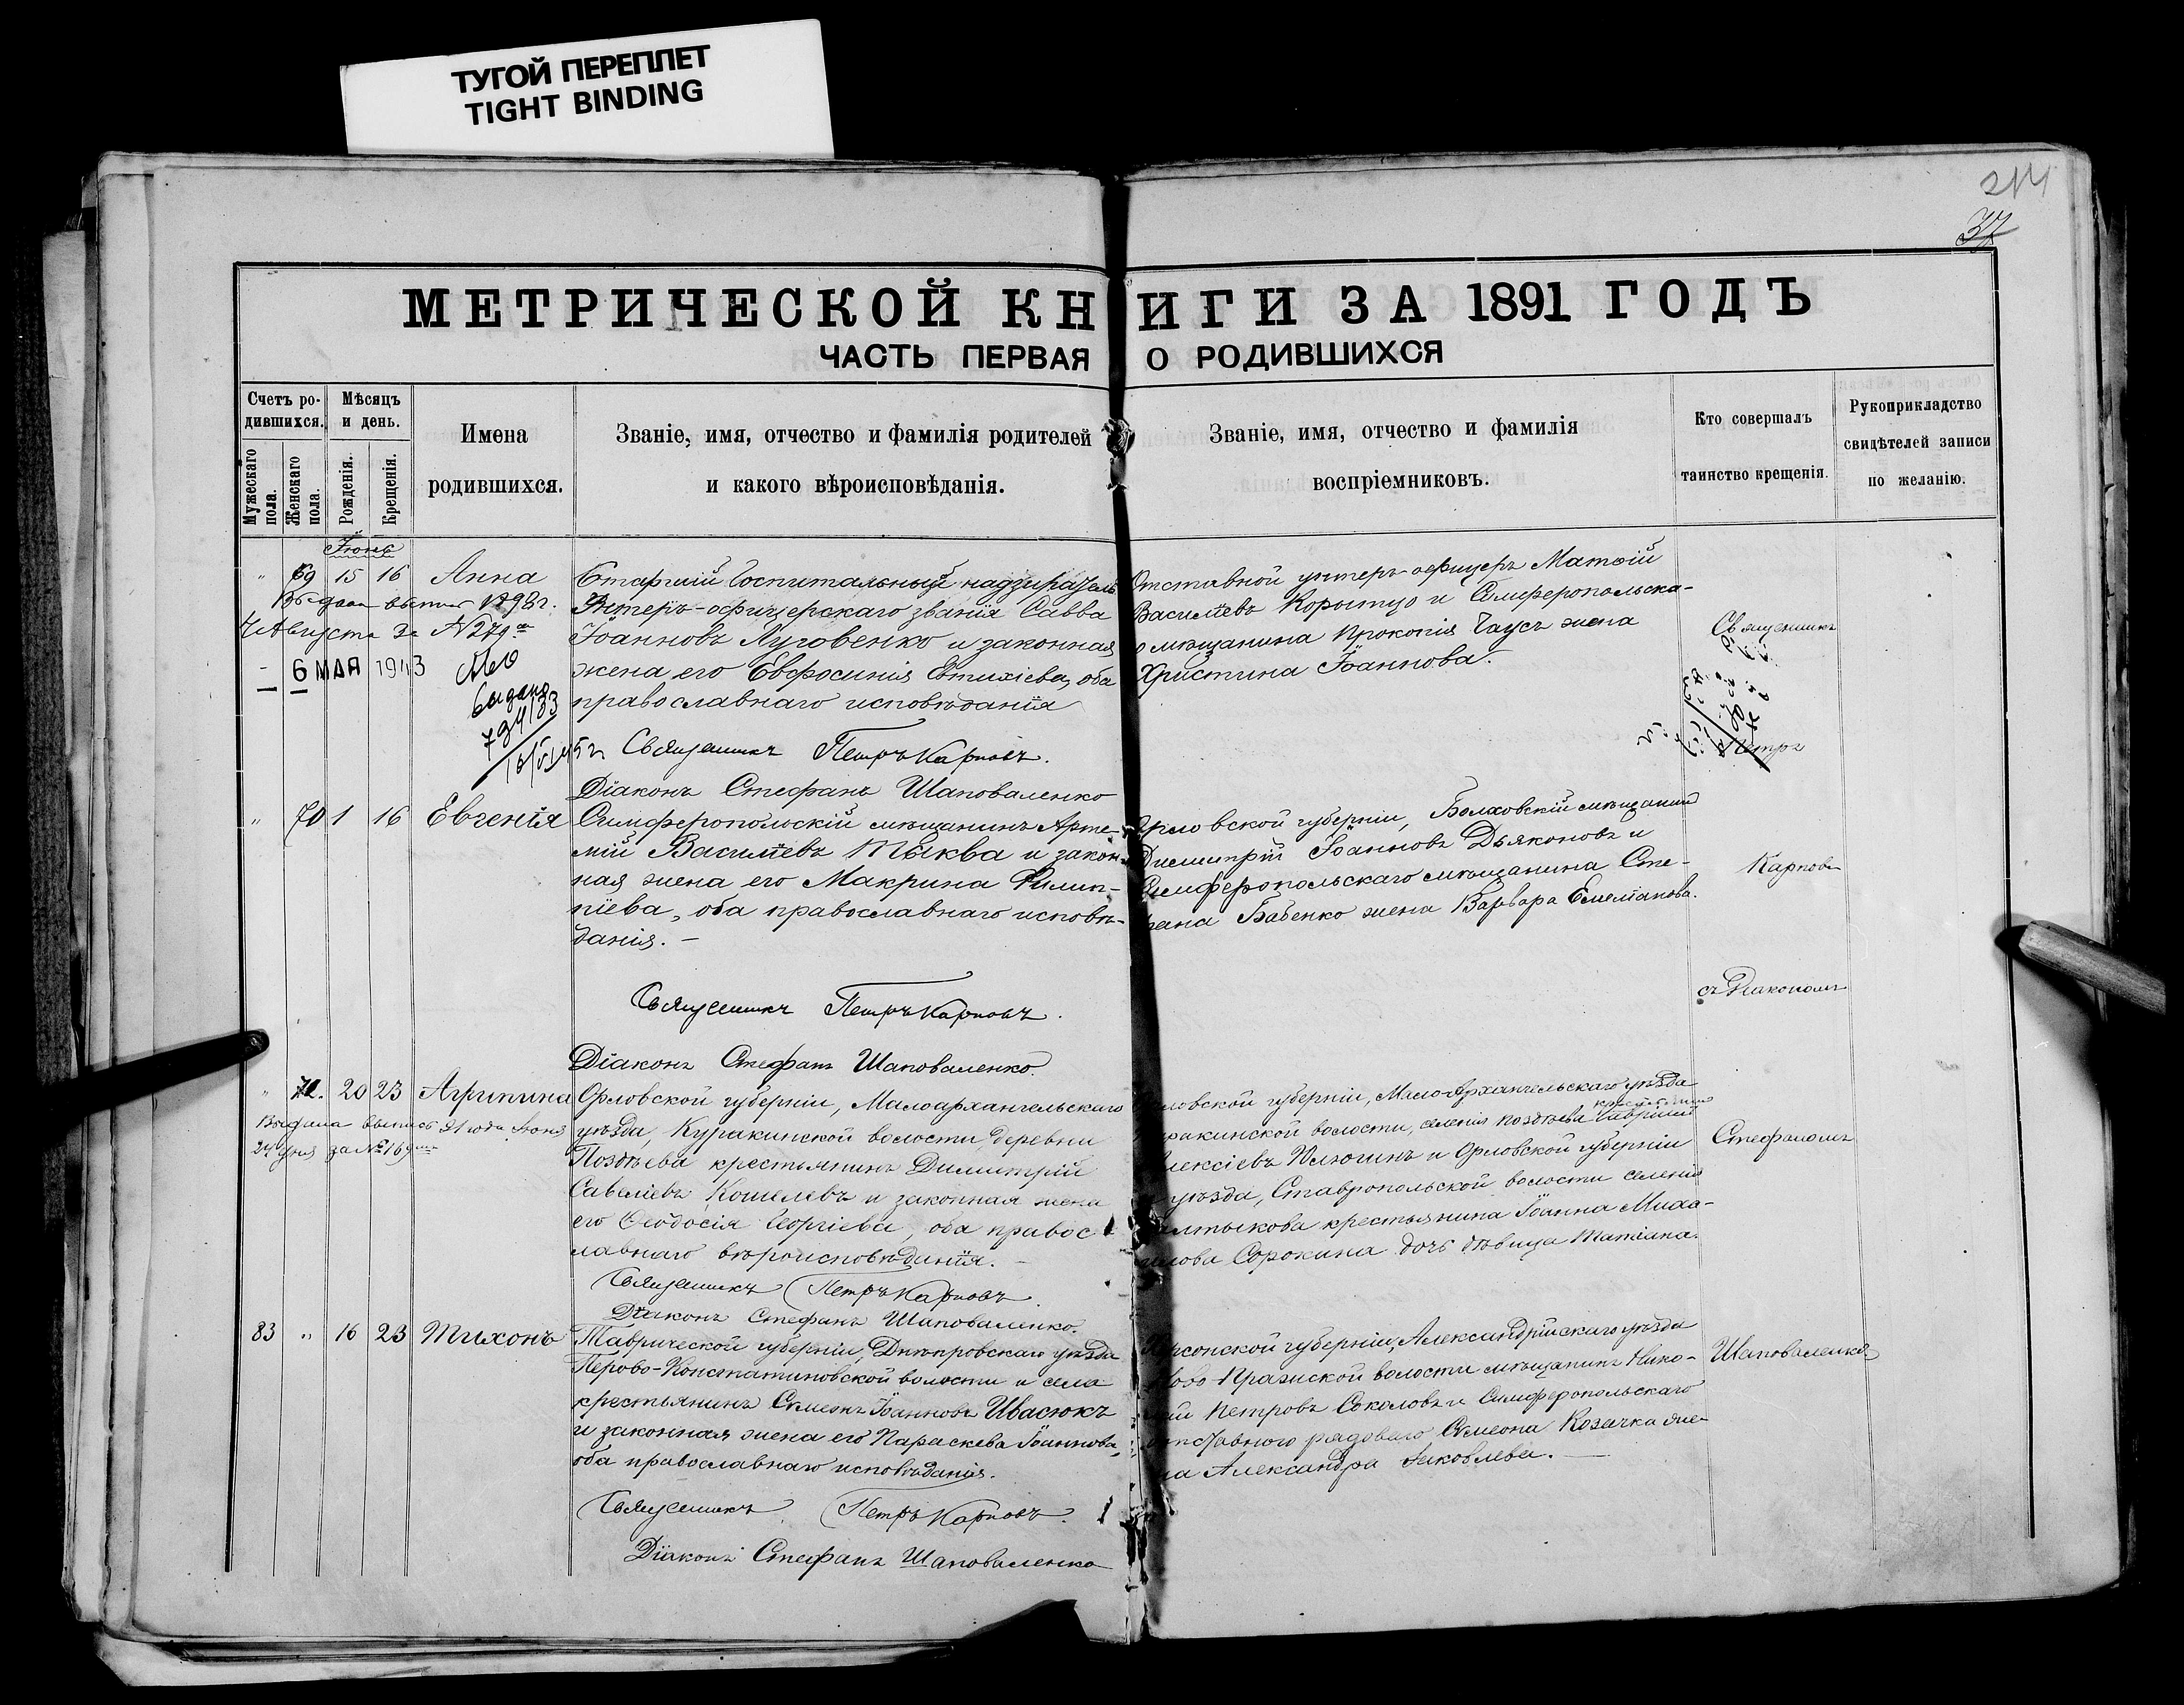 ТУГОЙ ПЕРЕПЛЕТ
TIGHT BINDING
214
37
МЕТРИЧЕСКОЙ КНИГИ ЗА 1891 ГОДЪ
ЧАСТЬ ПЕРВАЯ О РОДИВШИХСЯ
Счетъ ро-
дившихся.
Мужескаго
пола.
Женскаго
пола.
Мѣсяцъ
и день.
Рожденія.
Крещенія.
Имена
родившихся.
Званіе, имя, отчество и фамилія родителей
и какого вѣроисповѣданія.
Званіе, имя, отчество и фамилія
воспріемниковъ.
Кто совершалъ
таинство крещенія.
Рукоприкладство
свидѣтелей записи
по желанію.
Іюнь
" 69 15 16 Анна
7 Августа За № 279
6 МАЯ 1943
выдано
Старшій Госпитальный надзиратель
Унтеръ-офицерскаго званія Савва
Іоанновъ Луговенко и законная
жена его Евфросинія Евтихіева, оба
православнаго исповѣданія
Священникъ Петръ Карповъ.
Діаконъ Стефанъ Шаповаленко
Отставной унтеръ-офицеръ Матѳій
Василіевъ Корытцо и Симферопольска-
го мѣщанина Прокопія Чаусъ жена
Христина Іоаннова.
Священникъ
Петръ
" 70 1 16 Евгенія
Симферопольскій мѣщанинъ Арте-
мій Василіевъ Тыква и закон-
ная жена его Макрина Филип-
піева, оба православнаго исповѣ-
данія. –
Священникъ Петръ Карповъ.
Діаконъ Стефанъ Шаповаленко.
Орловской губерніи, Болховскій мѣщанинъ
Димитрій Іоанновъ Дьяконовъ и
Симферопольскаго мѣщанина Сте-
фана Бабенко жена Варвара Емеліанова.
Карповъ
съ Діакономъ
" 71. 20 23 Агрипина
Выдана выпись 91 года Іюня
24 дня за № 169
Орловской губерніи, Малоархангельскаго
уѣзда, Куракинской волости, деревни
Поздѣева крестьянинъ Димитрій
Савеліевъ Кошелевъ и законная жена
его Ѳеодосія Георгіева, оба правос-
лавнаго вѣроисповѣданія. –
Священникъ Петръ Карповъ.
Діаконъ Стефанъ Шаповаленко.
Орловской губерніи, Мало-Архангельскаго уѣзда
Куракинской волости, селенія Поздѣева крестьянинъ Гавріилъ
Алексіевъ и Орловской губерніи
уѣзда, Ставропольской волости селенія
Салтыкова крестьянина Іоанна Миха-
илова Сорокина дочь дѣвица Татіана.
Стефаномъ
83 " 16 23 Тихонъ
Таврической губерніи, Днѣпровскаго уѣзда
Перово-Константиновской волости и села
крестьянинъ Симеонъ Іоанновъ Ивасюкъ
и законная жена его Параскева Іоаннова,
оба православнаго исповѣданія.
Священникъ Петръ Карповъ.
Діаконъ Стефанъ Шаповаленко
Херсонской губерніи, Александрійскаго уѣзда
Ново-Пражской волости мѣщанинъ Нико-
лай Петровъ Соколовъ и Симферопольскаго
отставного рядоваго Симеона Козачка же-
на Александра Іаковлева. –
Шаповаленко